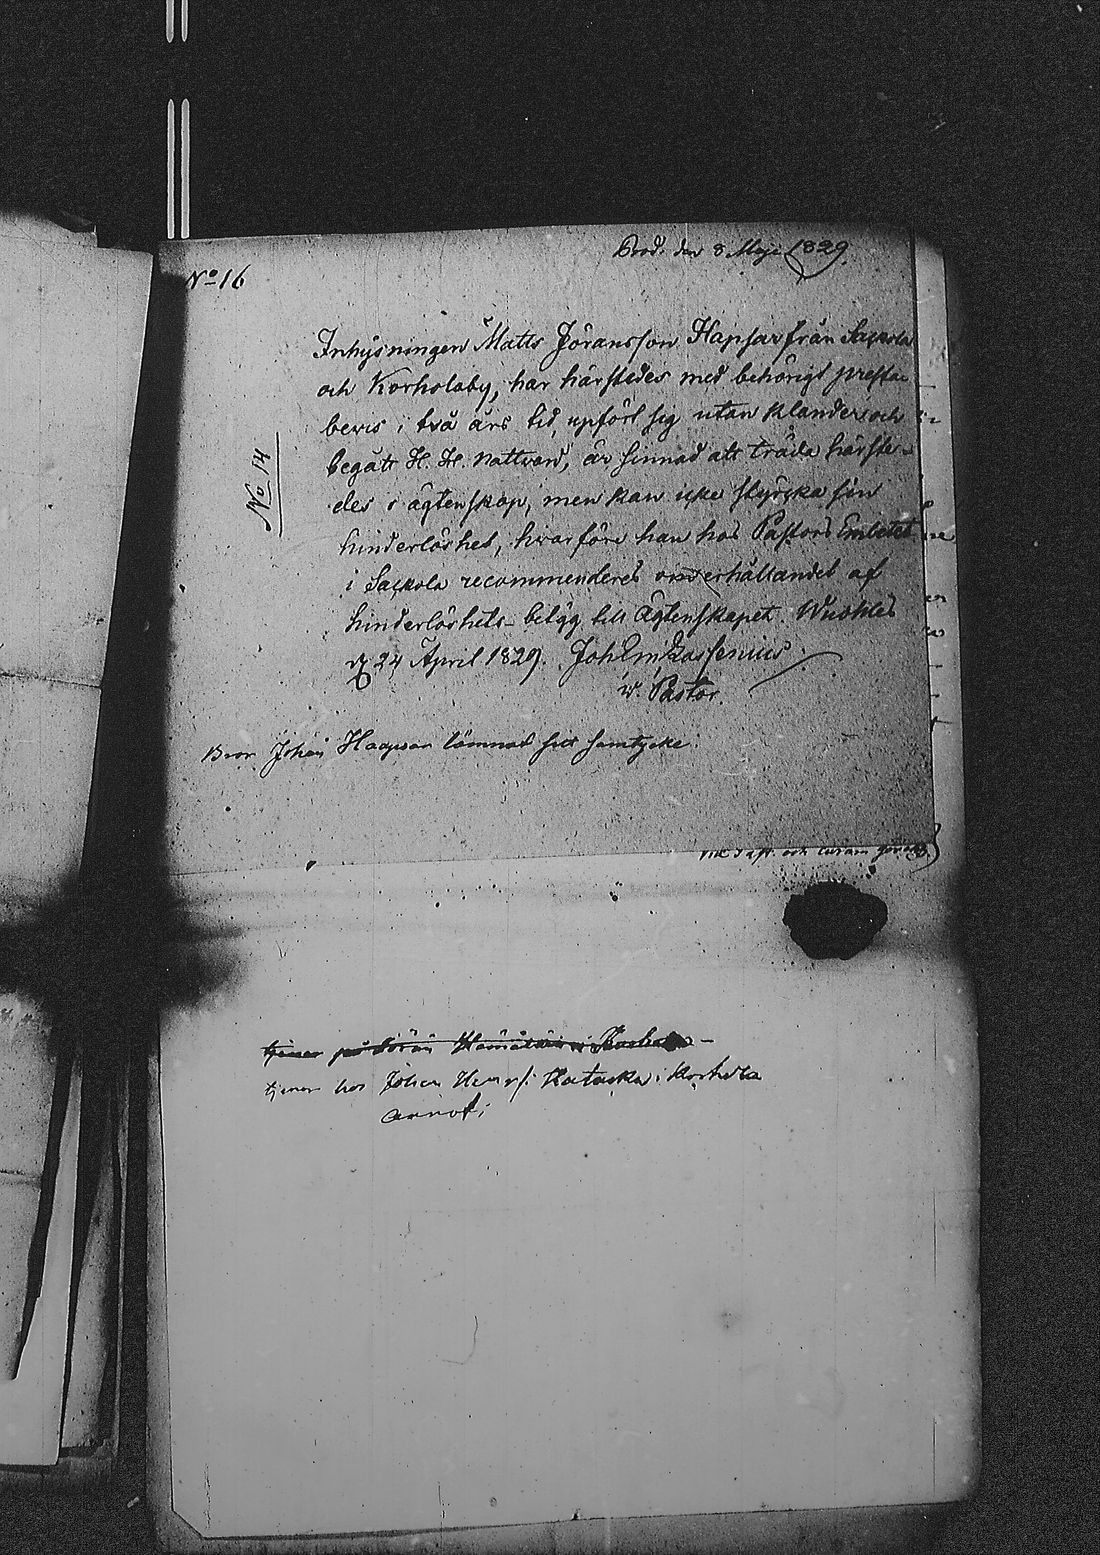 Prod. den 8 Maji 1829.
No 16
Inhysningen Matts Jöransson Hapsar från Sackola
och Korholaby, har härstedes med behörigt presta-
bevis i två års tid, upfört sig utan klander och
begått H. H. Nattvard, är sinnad att träda härste-
des i ägtenskap, men kan icke styrcka sin
hinderlöshet, hvarföre han hos Pastors Embetet
i Sackola recommenderes om erhållandet af
hinderlöshets-betyg till ägtenskapet.
d. 24 April 1829. Joh Em
v. Pastor.
No 14
Bror Johan Haapsar lämnad sitt samtycke.
och
tjener på Jöran
tjener hos Johan Henrs: i Korhola